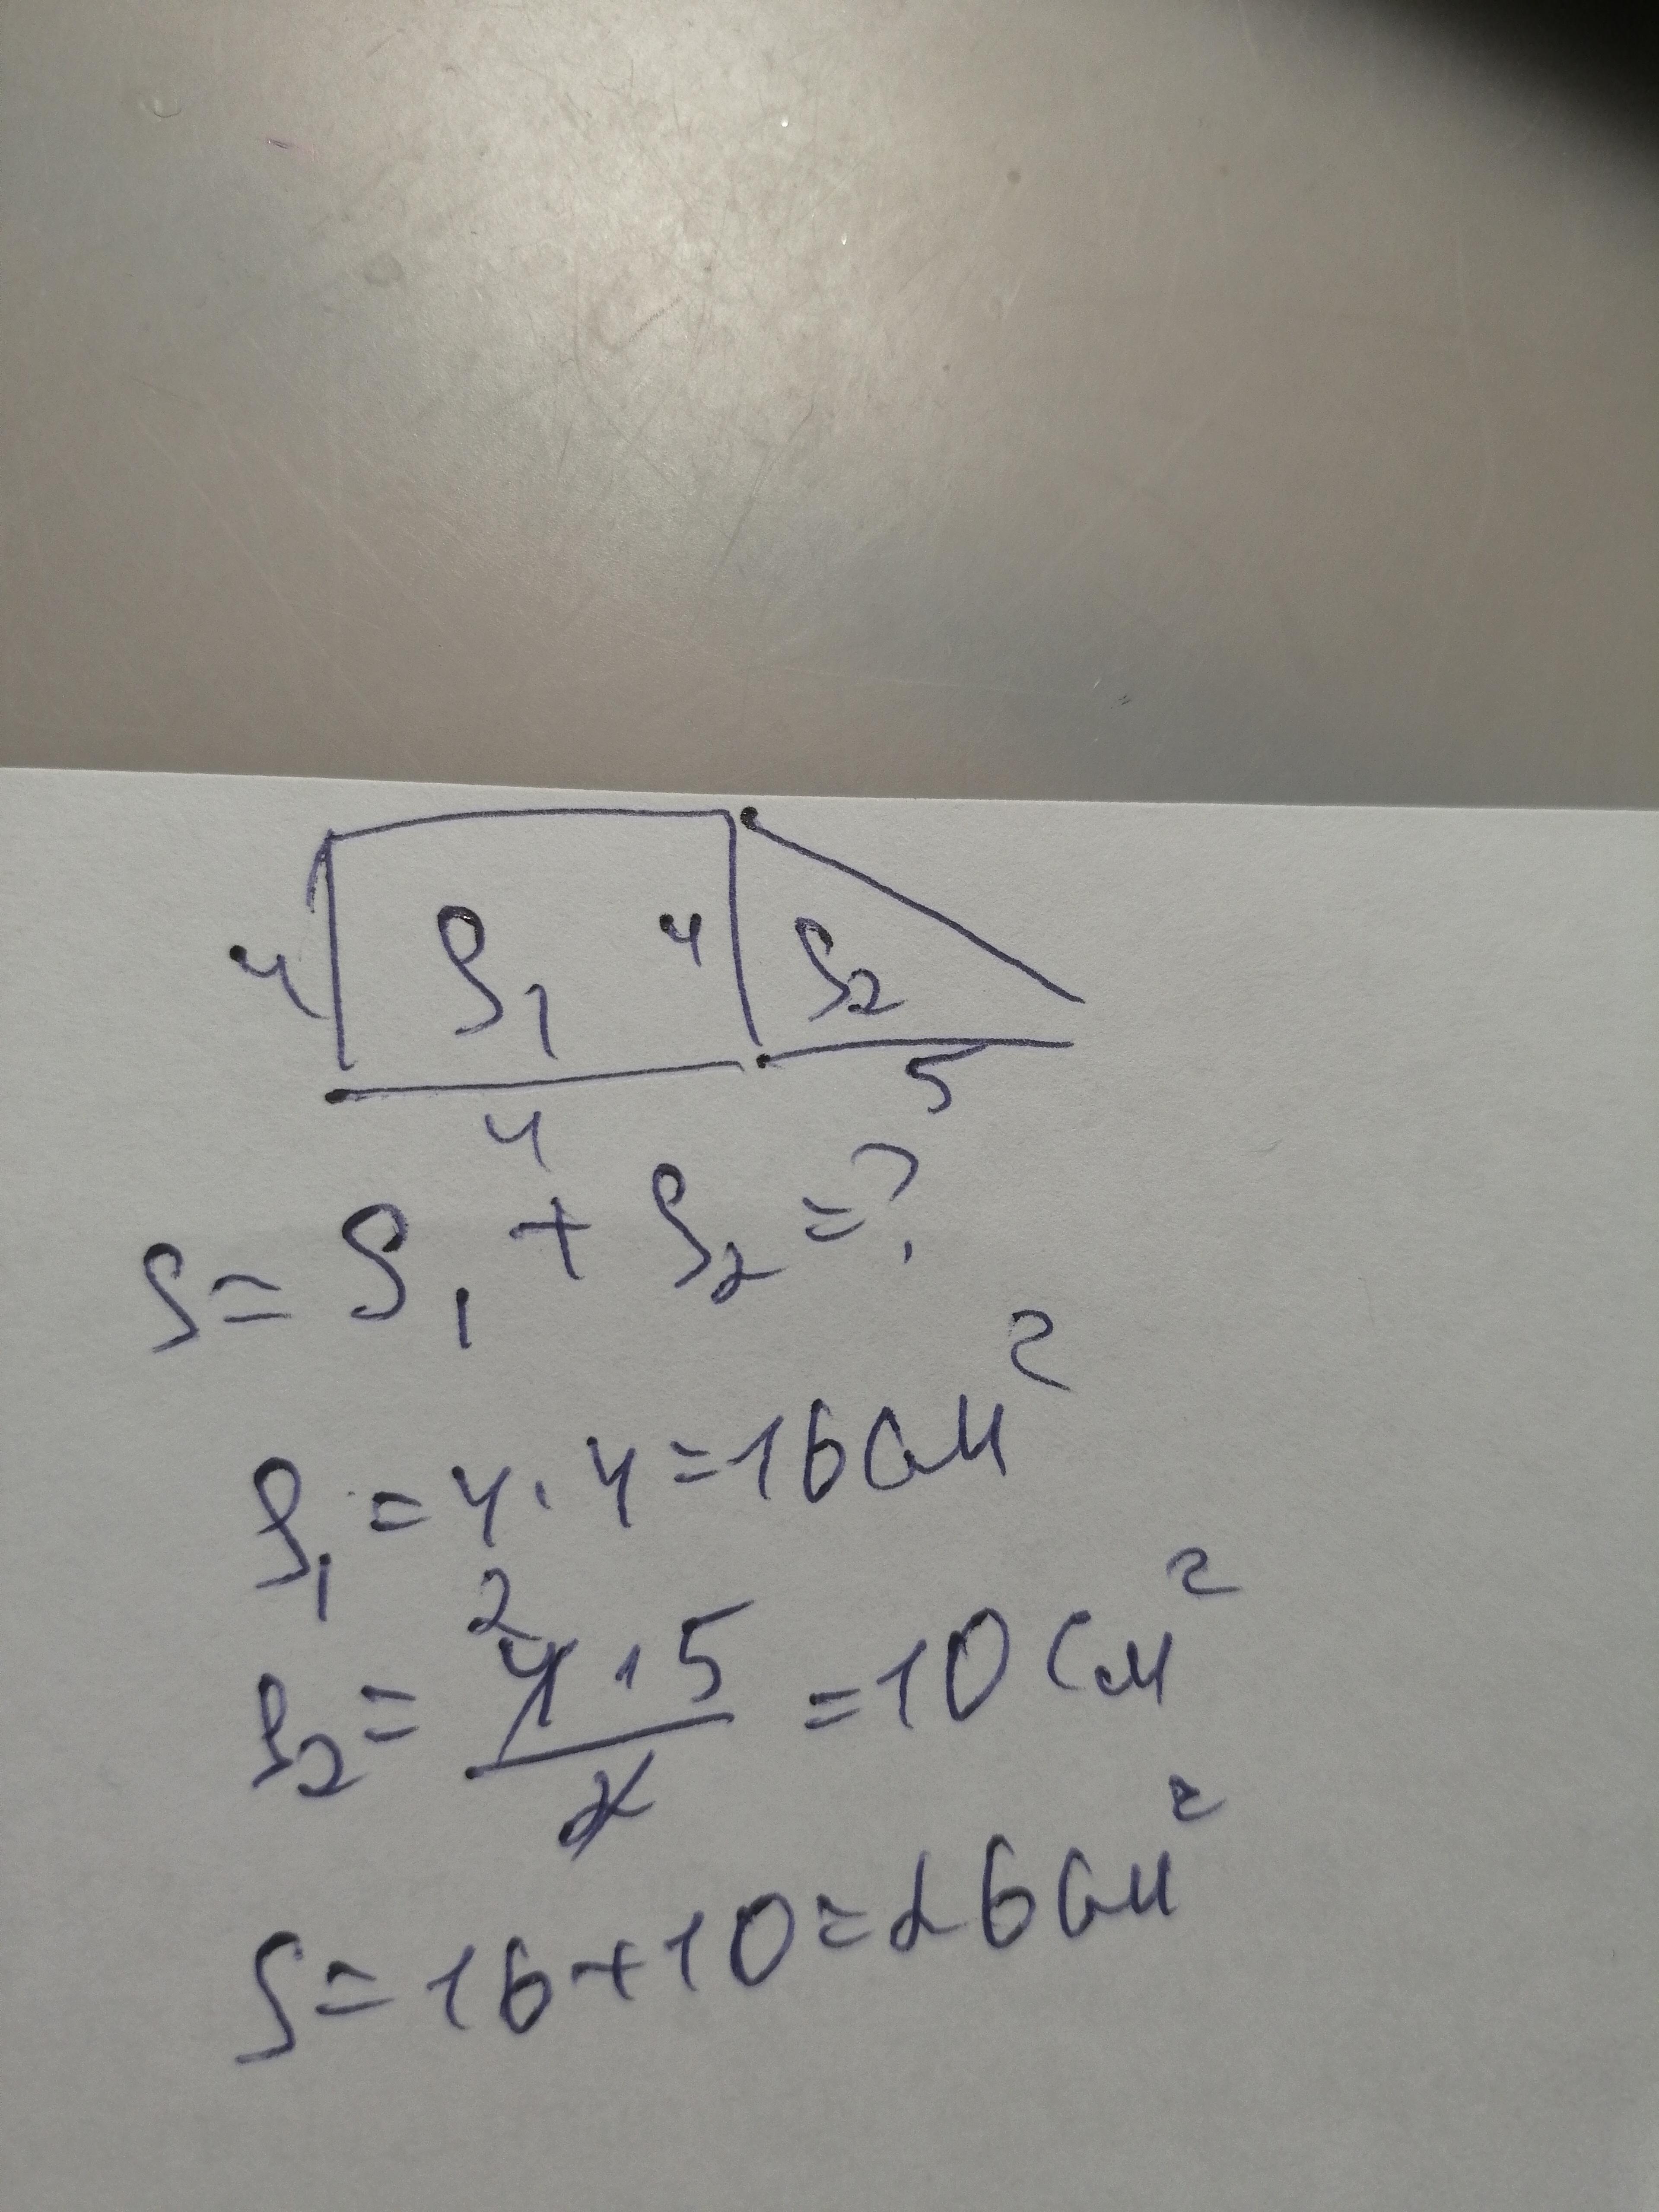 4 S1 4 S2
4 5
S = S1 + S2 = ?
S1 = 4 · 4 = 16 см²
2
S2 = 4 · 5 / 2 = 10 см²
S = 16 + 10 = 26 см²